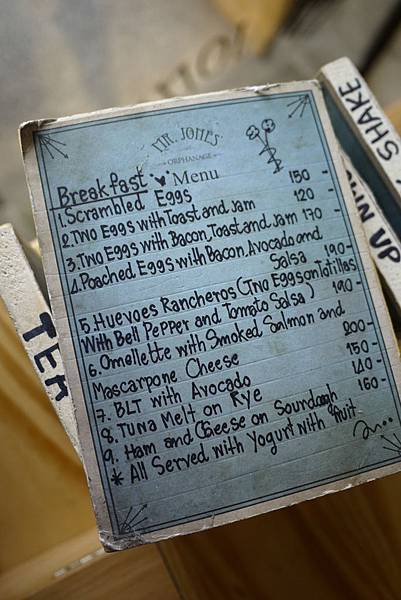 MR. JONES'
ORPHANAGE
Breakfast Menu
1. Scrambled Eggs 150 -
2. Two Eggs with Toast and Jam 120 -
3. Two Eggs with Bacon, Toast and Jam 170 -
4. Poached Eggs with Bacon, Avocado and
Salsa 190-
5. Huevoes Rancheros (Two Eggs on Totillas
With Bell Pepper and Tomato Salsa) 190-
6. Omollette with Smoked Salmon and
Mascarpone Cheese 200-
7. BLT with Avocado 150-
8. Tuna Melt on Rye 140-
9. Ham and Cheese on Sourdough 160-
* All Served with Yogurt with fruit
SHAKE
UP